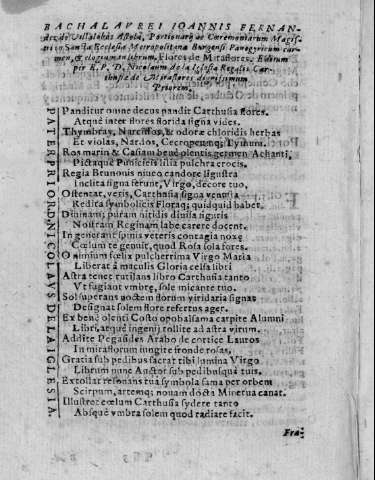 BACHALAVREI IOANNIS FERNAN-
dez de Villalobos Portionarij ac Caeremoniarum Magis-
tri in Sancta Ecclesia Metropolitana Burgensi Panegyricum car-
men, & elogium ad librum, Flores de Miraflores. Editum
per R. P. D. Nicolaum de la Iglesia Regalis Car-
thusiae de Miraflores dignissimum
Priorem.
PATER PRIOR D. NICOLAVS DE LA IGLESIA
Panditur omne decus pandit Carthusia flores.
Atque inter flores florida signa vides.
Thymbray, Narcissos, & odorae chloridis herbas
Et violas, Nardos, Cecropiumq; Tymum.
Ros marin & Casiam bene olentis germen Achanti,
Pictaque Puniceis lilia pulchra crocis.
Regia Brunonis niueo candore ligustra
Inclita signa ferunt, Virgo, decore tuo,
Ostentat, veris, Carthusia signa venusta
Reddita symbolicis Floraq; quidquid habet.
Diuinam; puram nitidis diuisa figuris
Nostram Reginam labe carere docent.
In generant spinis veteris contagia noxae
Coelum te genuit, quod Rosa sola fores.
O nimium foelix pulcherrima Virgo Maria
Liberat à maculis Gloria celsa libri
Astra tenet tutilans libro Carthusia tanto
Vt fugiant vmbrae, sole micante tuo.
Sol superans noctem florum viridaria signas
Designat solem flore refertus ager.
Ex bene olenti Costo opobalsama carpite Alumni
Libri, atque ingenij tollite ad astra virum.
Addite Pegasides Arabo de cortice Lauros
In miraflorum iungite fronde rosas,
Gratia sub pedibus sacrat tibi lumina Virgo
Librum nunc Auctor sub pedibusqua tuis.
Extollat resonans tuâ symbola fama per orbem
Scirpum, artemq; nouam docta Minerua canat.
Illustrat coelum Carthusia sydere tanto
Absque vmbra solem quod radiare facit.
Fra-